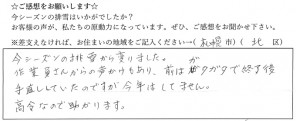 ☆ご感想をお願いします☆
今シーズンの排雪はいかがでしたか？
お客様の声が、私たちの原動力になっています。ぜひ、ご感想をお聞かせ下さい。
※差支えなければ、お住まいの地域をご記入ください→( 札幌 市) ( 北 区)
今シーズンの排雪から変りました。
作業員さんからの声かけもあり、前はガタガタで終了後
手直ししていたのですが今年はしてません。
高令なので助かります。